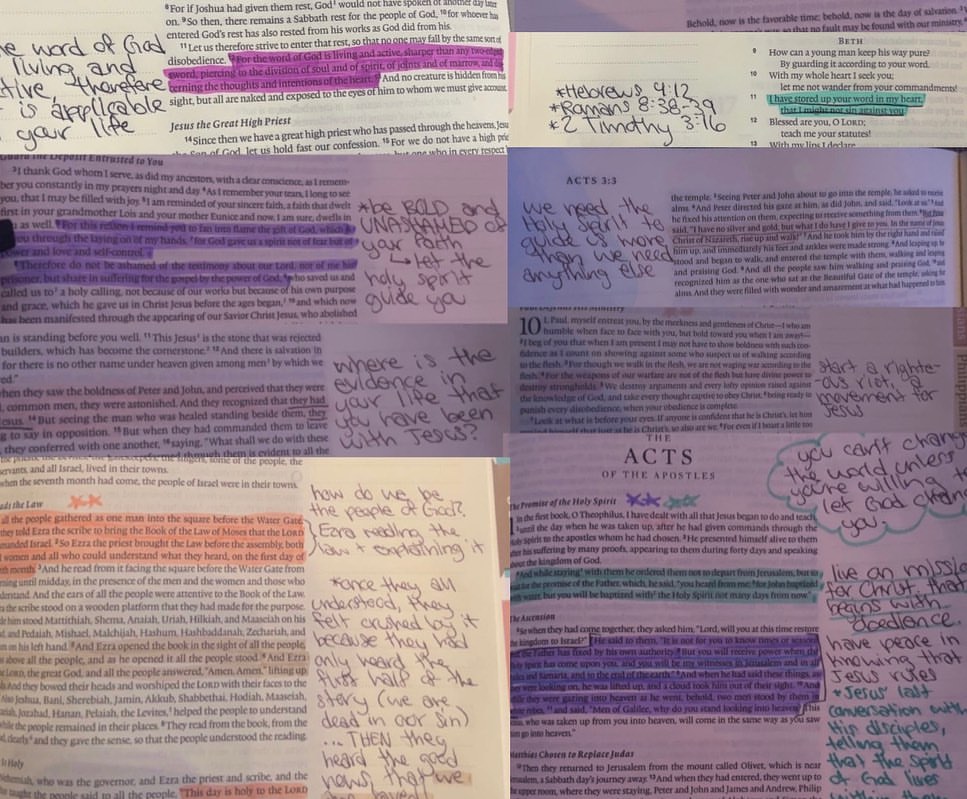 ⁸For if Joshua had given them rest, God would not have spoken of another day later
on. ⁹So then, there remains a Sabbath rest for the people of God, ¹⁰for whoever has
entered God's rest has also rested from his works as God did from his.
¹¹Let us therefore strive to enter that rest, so that no one may fall by the same sort of
disobedience. ¹²For the word of God is living and active, sharper than any two-edged
sword, piercing to the division of soul and of spirit, of joints and of marrow, and
cerning the thoughts and intentions of the heart. ¹³And no creature is hidden from his
sight, but all are naked and exposed to the eyes of him to whom we must give account.
Jesus the Great High Priest
¹⁴Since then we have a great high priest who has passed through the heavens, Jesu
of God, let us hold fast our confession. ¹⁵For we do not have a high prie
he word of God
living and
tive, therefore
is applicable
your life
Behold, now is the favorable time; behold, now is the day of salvation.
BETH
9 How can a young man keep his way pure?
By guarding it according to your word.
10 With my whole heart I seek you;
let me not wander from your commandments!
11 I have stored up your word in my heart,
that I might not sin against you.
12 Blessed are you, O LORD;
teach me your statutes!
13 With my lips I declare
*Hebrews 4:12
*Romans 8:38-39
*2 Timothy 3:16
Guard the Deposit Entrusted to You
³I thank God whom I serve, as did my ancestors, with a clear conscience, as I remem-
ber you constantly in my prayers night and day. ⁴As I remember your tears, I long to see
you, that I may be filled with joy. ⁵I am reminded of your sincere faith, a faith that dwelt
first in your grandmother Lois and your mother Eunice and now, I am sure, dwells in
as well. ⁶For this reason I remind you to fan into flame the gift of God, which is
you through the laying on of my hands, ⁷for God gave us a spirit not of fear but of
power and love and self-control.
⁸Therefore do not be ashamed of the testimony about our Lord, nor of me his
prisoner, but share in suffering for the gospel by the power of God, ⁹who saved us and
called us to a holy calling, not because of our works but because of his own purpose
and grace, which he gave us in Christ Jesus before the ages began, ¹⁰and which now
has been manifested through the appearing of our Savior Christ Jesus, who abolished
*be BOLD and
UNASHAMED of
your faith
↳ let the
holy spirit
guide you
ACTS 3:3
the temple. ³Seeing Peter and John about to go into the temple, he asked to receive
alms. ⁴And Peter directed his gaze at him, as did John, and said, "Look at us." ⁵And
he fixed his attention on them, expecting to receive something from them. ⁶But Peter
said, "I have no silver and gold, but what I do have I give to you. In the name of Jesus
Christ of Nazareth, rise up and walk!" ⁷And he took him by the right hand and raised
him up, and immediately his feet and ankles were made strong. ⁸And leaping up he
stood and began to walk, and entered the temple with them, walking and leaping
and praising God. ⁹And all the people saw him walking and praising God, ¹⁰and
recognized him as the one who sat at the Beautiful Gate of the temple, asking for
alms. And they were filled with wonder and amazement at what had happened to him.
we need the
Holy Spirit to
guide us more
than we need
anything else
an is standing before you well. ¹¹This Jesus is the stone that was rejected
builders, which has become the cornerstone. ¹²And there is salvation in
for there is no other name under heaven given among men by which we
ed."
when they saw the boldness of Peter and John, and perceived that they were
common men, they were astonished. And they recognized that they had
Jesus. ¹⁴But seeing the man who was healed standing beside them, they
g to say in opposition. ¹⁵But when they had commanded them to leave
they conferred with one another, ¹⁶saying, "What shall we do with these
where is the
evidence in
your life that
you have been
with Jesus?
10 I, Paul, myself entreat you, by the meekness and gentleness of Christ—I who am
humble when face to face with you, but bold toward you when I am away!—
²I beg of you that when I am present I may not have to show boldness with such con-
fidence as I count on showing against some who suspect us of walking according
to the flesh. ³For though we walk in the flesh, we are not waging war according to the
flesh. ⁴For the weapons of our warfare are not of the flesh but have divine power to
destroy strongholds. ⁵We destroy arguments and every lofty opinion raised against
the knowledge of God, and take every thought captive to obey Christ, ⁶being ready to
punish every disobedience, when your obedience is complete.
⁷Look at what is before your eyes. If anyone is confident that he is Christ's, let him
start a righte-
ous riot, a
movement for
Jesus
servants, and all Israel, lived in their towns.
when the seventh month had come, the people of Israel were in their towns.
ads the Law
all the people gathered as one man into the square before the Water Gate.
they told Ezra the scribe to bring the Book of the Law of Moses that the LORD
manded Israel. ²So Ezra the priest brought the Law before the assembly, both
women and all who could understand what they heard, on the first day of
th month. ³And he read from it facing the square before the Water Gate from
rning until midday, in the presence of the men and the women and those who
derstand. And the ears of all the people were attentive to the Book of the Law.
a the scribe stood on a wooden platform that they had made for the purpose.
de him stood Mattithiah, Shema, Anaiah, Uriah, Hilkiah, and Maaseiah on his
and Pedaiah, Mishael, Malchijah, Hashum, Hashbaddanah, Zechariah, and
on his left hand. ⁵And Ezra opened the book in the sight of all the people,
above all the people, and as he opened it all the people stood. ⁶And Ezra
LORD, the great God, and all the people answered, "Amen, Amen," lifting up
And they bowed their heads and worshiped the LORD with their faces to the
Also Jeshua, Bani, Sherebiah, Jamin, Akkub, Shabbethai, Hodiah, Maaseiah,
ariah, Jozabad, Hanan, Pelaiah, the Levites, helped the people to understand
while the people remained in their places. ⁸They read from the book, from the
clearly, and they gave the sense, so that the people understood the reading.
Is Holy
Nehemiah, who was the governor, and Ezra the priest and scribe, and the
taught the people said to all the people, "This day is holy to the LORD
how do we be
the people of God?
Ezra reading the
law + explaining it
*once they all
understood, they
felt crushed by it
because they had
only heard the
first half of the
story (we are
dead in our sin)
...THEN they
heard the good
news that we
THE
ACTS
OF THE APOSTLES
The Promise of the Holy Spirit
1 In the first book, O Theophilus, I have dealt with all that Jesus began to do and teach,
²until the day when he was taken up, after he had given commands through the
Holy Spirit to the apostles whom he had chosen. ³He presented himself alive to them
after his suffering by many proofs, appearing to them during forty days and speaking
about the kingdom of God.
⁴And while staying with them he ordered them not to depart from Jerusalem, but to
wait for the promise of the Father, which, he said, "you heard from me; ⁵for John baptized
with water, but you will be baptized with the Holy Spirit not many days from now."
The Ascension
⁶So when they had come together, they asked him, "Lord, will you at this time restore
the kingdom to Israel?" ⁷He said to them, "It is not for you to know times or seasons
that the Father has fixed by his own authority. ⁸But you will receive power when the
Holy Spirit has come upon you, and you will be my witnesses in Jerusalem and in all
Judea and Samaria, and to the end of the earth." ⁹And when he had said these things, as
they were looking on, he was lifted up, and a cloud took him out of their sight. ¹⁰And
while they were gazing into heaven as he went, behold, two men stood by them in
white robes, ¹¹and said, "Men of Galilee, why do you stand looking into heaven? This
Jesus, who was taken up from you into heaven, will come in the same way as you saw
him go into heaven."
Matthias Chosen to Replace Judas
¹²Then they returned to Jerusalem from the mount called Olivet, which is near
Jerusalem, a Sabbath day's journey away. ¹³And when they had entered, they went up to
the upper room, where they were staying, Peter and John and James and Andrew, Philip
you can't change
the world unless
you're willing to
let God change
you.
live on mission
for Christ that
begins with
obedience
have peace in
knowing that
Jesus rules
*Jesus' last
conversation with
His disciples,
telling them
that the spirit
of God lives